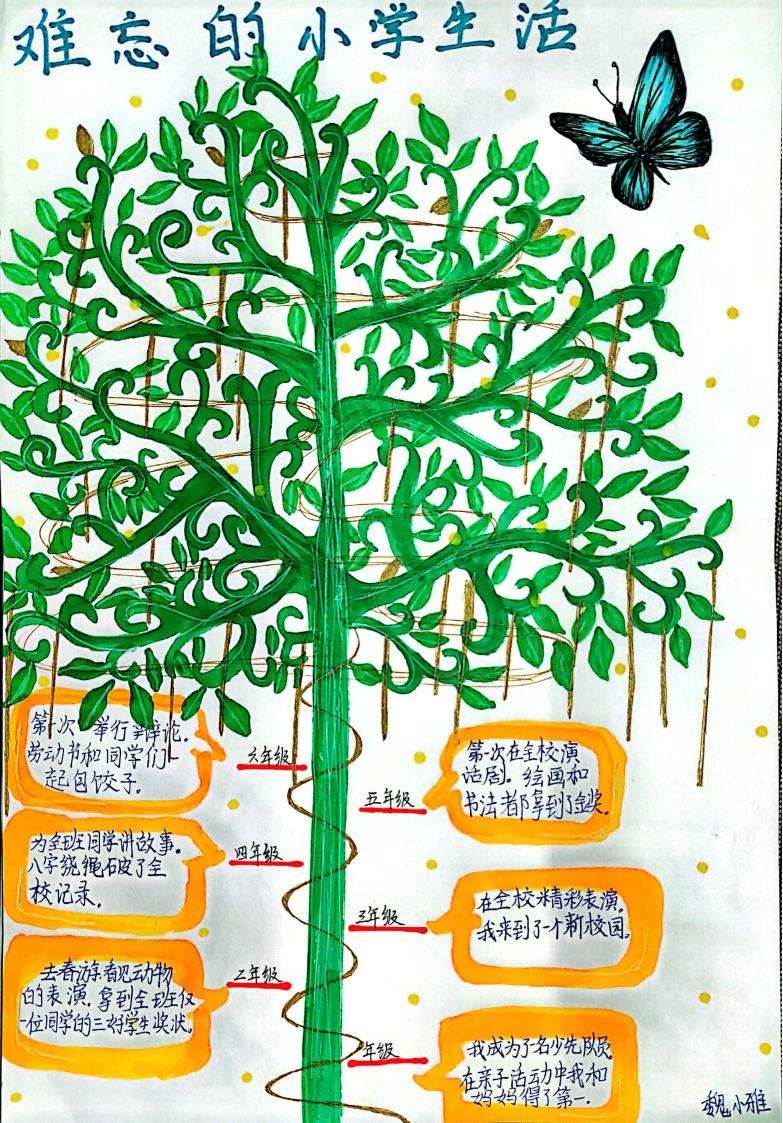 难忘的小学生活
第一次举行辩论。
劳动节和同学们一
起包饺子。
六年级
第一次在全校演
话剧。绘画和
书法都拿到了金奖。
五年级
为全班同学讲故事。
八字绕绳破了全
校记录。
四年级
在全校精彩表演。
我来到了一个新校园。
三年级
去春游看见动物
的表演。拿到全班仅
一位同学的三好学生奖状。
二年级
我成为了名少先队员。
在亲子活动中我和
妈妈得了第一。
一年级
魏小雅